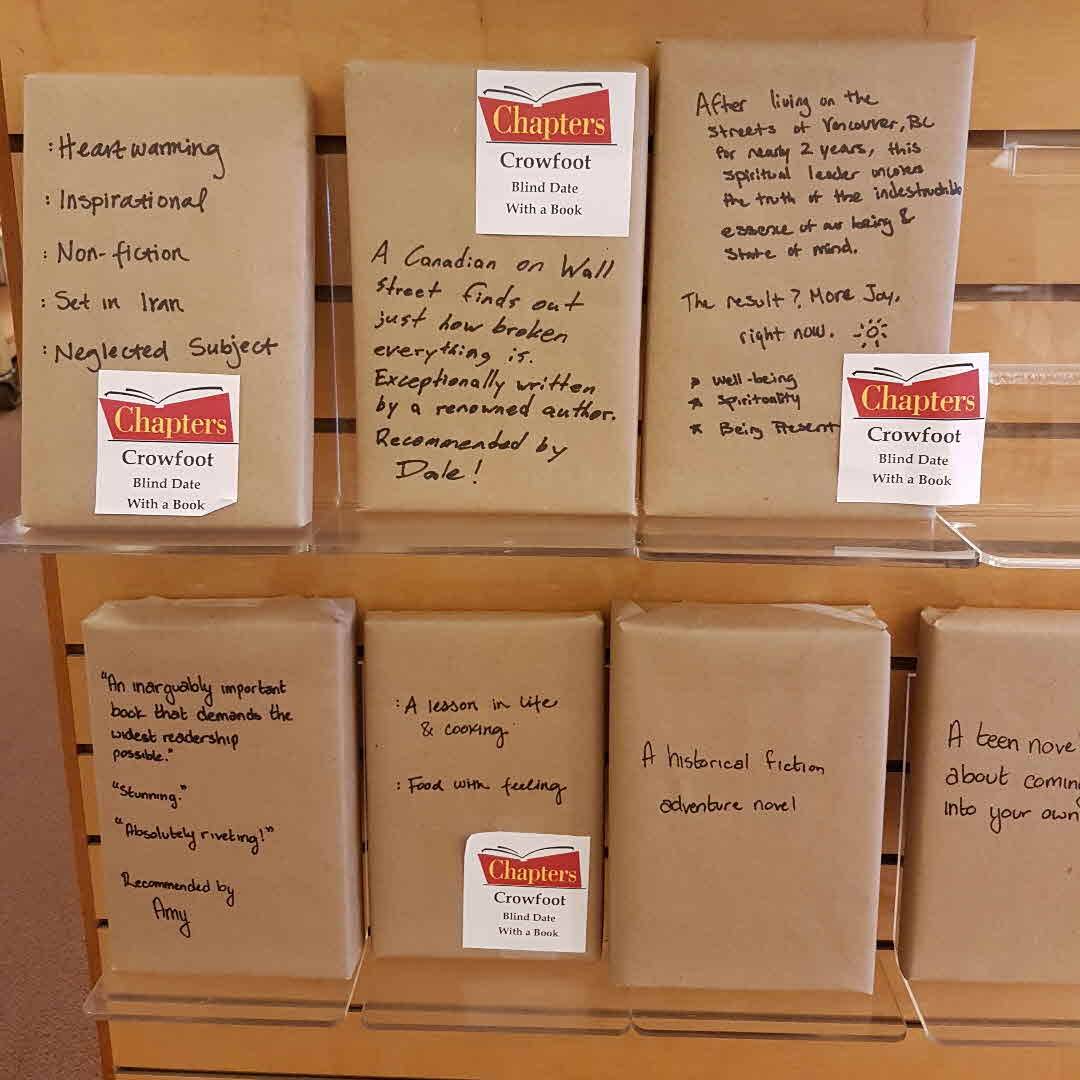 : Heartwarming
: Inspirational
: Non-fiction
: Set in Iran
: Neglected Subject
Chapters
Crowfoot
Blind Date
With a Book
Chapters
Crowfoot
Blind Date
With a Book
A Canadian on Wall
Street finds out
just how broken
everything is.
Exceptionally written
by a renowned author.
Recommended by
Dale!
After living on the
streets of Vancouver, BC
for nearly 2 years, this
spiritual leader uncovers
the truth of the indestructible
essence of our being &
state of mind.
The result? More Joy,
right now.
* Well-being
* Spirituality
* Being Present
Chapters
Crowfoot
Blind Date
With a Book
"An inarguably important
book that demands the
widest readership
possible."
"Stunning."
"Absolutely riveting!"
Recommended by
Amy
: A lesson in life
& cooking
: Food with feeling
Chapters
Crowfoot
Blind Date
With a Book
A historical fiction
adventure novel
A teen nove
about coming
into your own